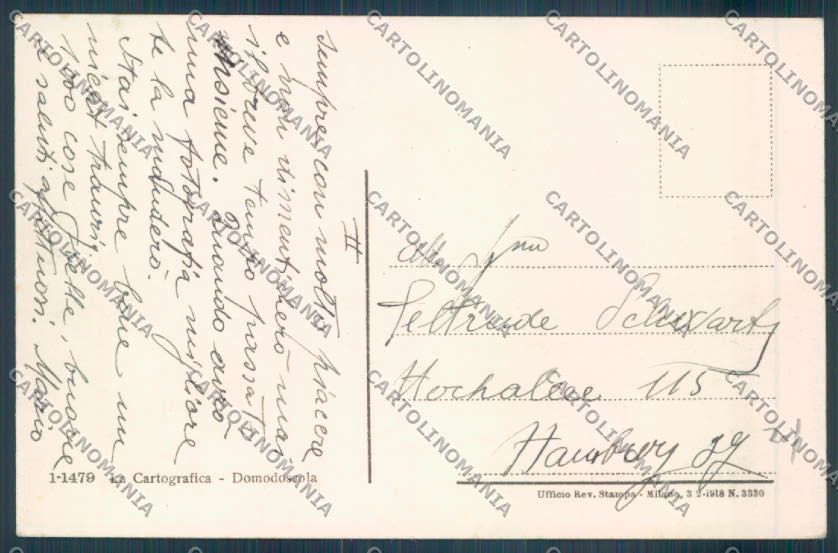 II
sempre con molto piacere
e non dimenticherò mai
il breve tempo passato
insieme. Quando avrò
una fotografia migliore
te la manderò.
Stai sempre bene un
1000 cose belle, buone
e saluti affettuosi. Mario
Geltrude Schwartz
Hochallee 115
Hamburg 39
1-1479 La Cartografica - Domodossola
Ufficio Rev. Stampa - Milano, 3 2-1918 N. 3330
CARTOLINOMANIA